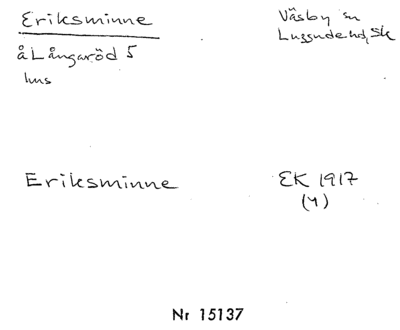 Eriksminne
Väsby sn
Luggude hd, Sk
å Långaröd 5
hus
Eriksminne
EK 1917
(4)
Nr 15137